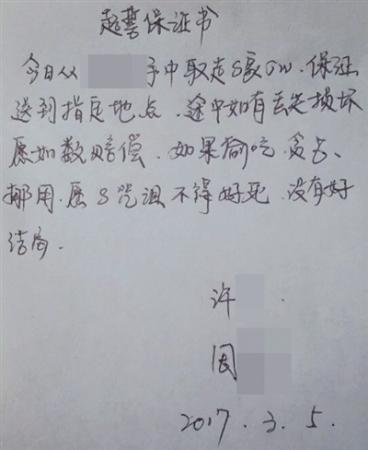 起誓保证书
今日从 手中取走S家 保证
送到指定地点. 途中如有丢失损坏
愿如数赔偿. 如果偷吃. 贪占、
挪用. 愿S咒诅不得好死 没有好
结局.
许
因
2017.3.5.